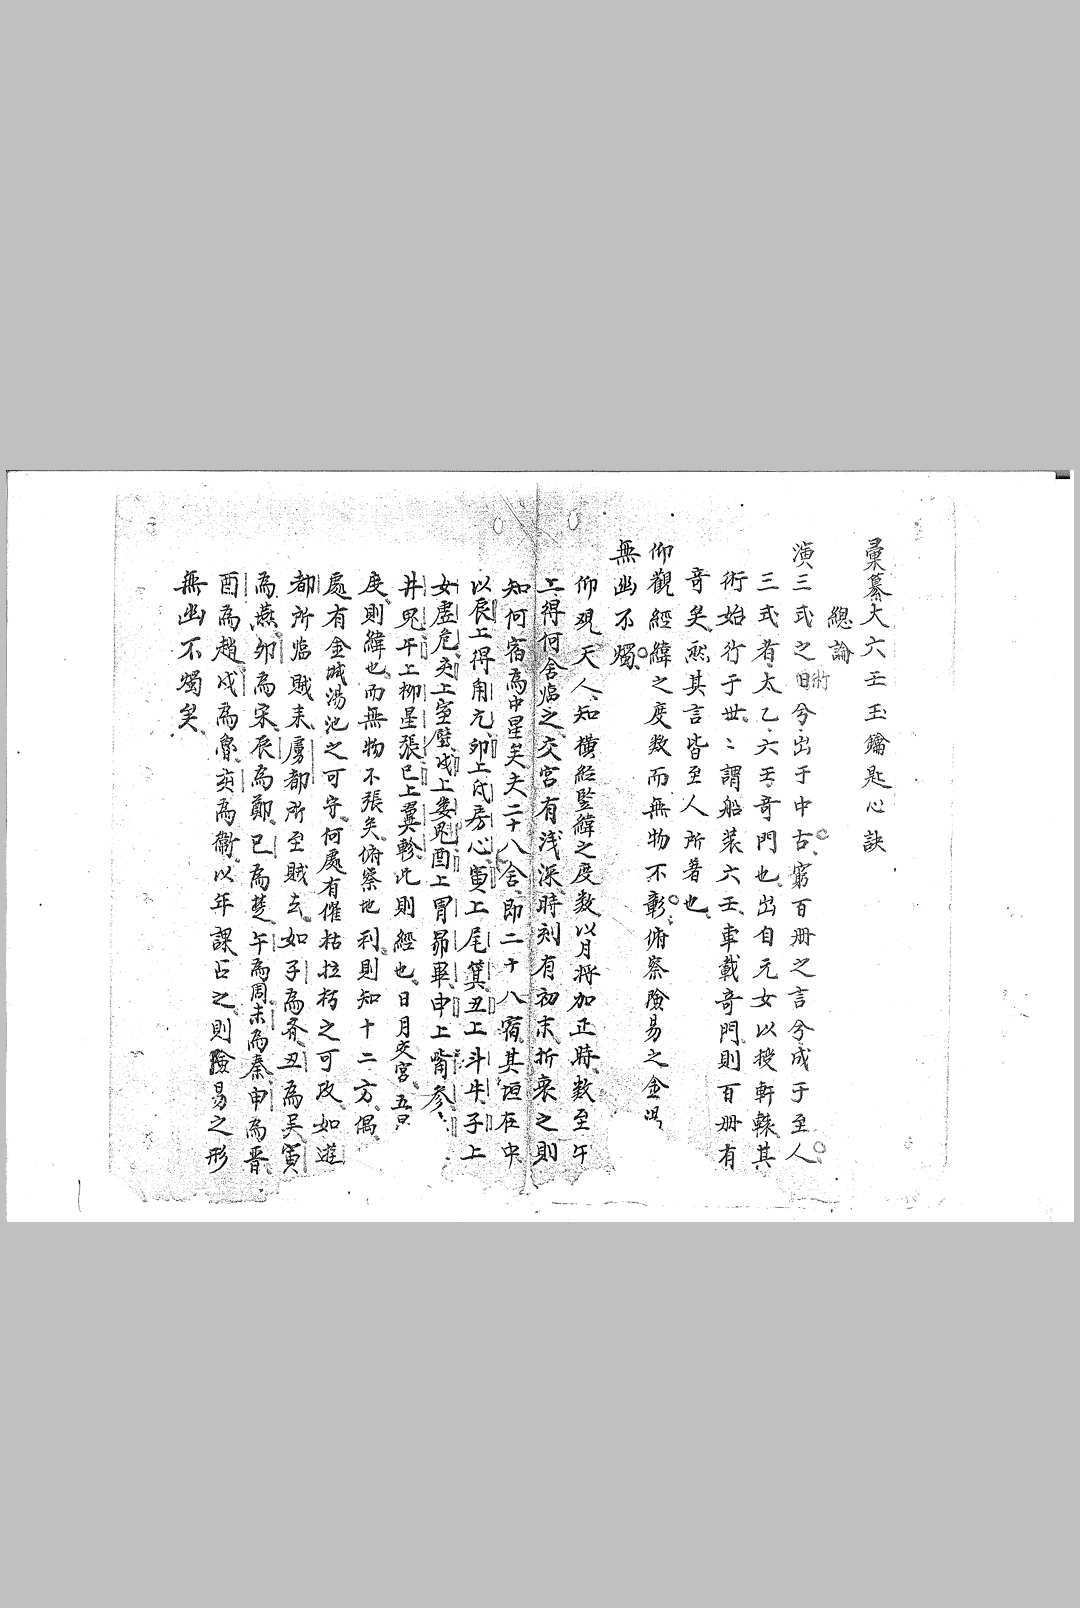 彙纂大六壬玉鑰匙心訣
總論
演三式之術兮出于中古窮百冊之言兮成于至人
三式者太乙六壬奇門也出自元女以授軒轅其
術始行于世〻謂船装六壬車載奇門則百冊有
奇矣然其言皆至人所著也
仰觀經緯之度数而無物不彰俯察險易之金湯
無幽不燭
仰观天人知橫经竪緯之度数以月将加正時数至午
上得何舍临之交宫有浅深時刻有初末折衷之則
知何宿為中星矣夫二十八舍即二十八宿其垣在中
以辰上得角亢卯上氐房心寅上尾箕丑上斗牛子上
女虚危亥上室壁戌上婁奎酉上胃昴畢申上觜参
井鬼午上柳星張巳上翼軫此則經也日月交宫五日
度則緯也而無物不張矣俯察地利則知十二方偶
處有金城湯池之可守何處有催枯拉朽之可攻如遊
都所临賊来虜都所至賊去如子為齐丑為吴寅
為燕卯為宋辰為鄭巳為楚午為周未為秦申為晋
酉為趙戌為魯亥為衞以年課占之則險易之形
無幽不燭矣